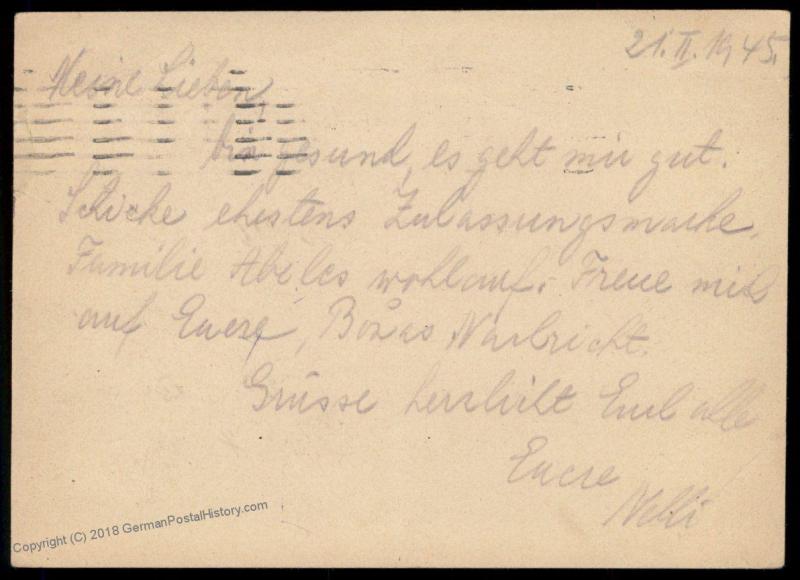 21. II. 1945.
Meine Lieben,
bin gesund, es geht mir gut.
Schicke ehestens Zulassungsmarke.
Familie Abeles wohlauf. Freue mich
auf Euere, Božas Nachricht.
Grüsse herzlichst Euch alle
Euere
Nelli
Copyright (C) 2018 GermanPostalHistory.com